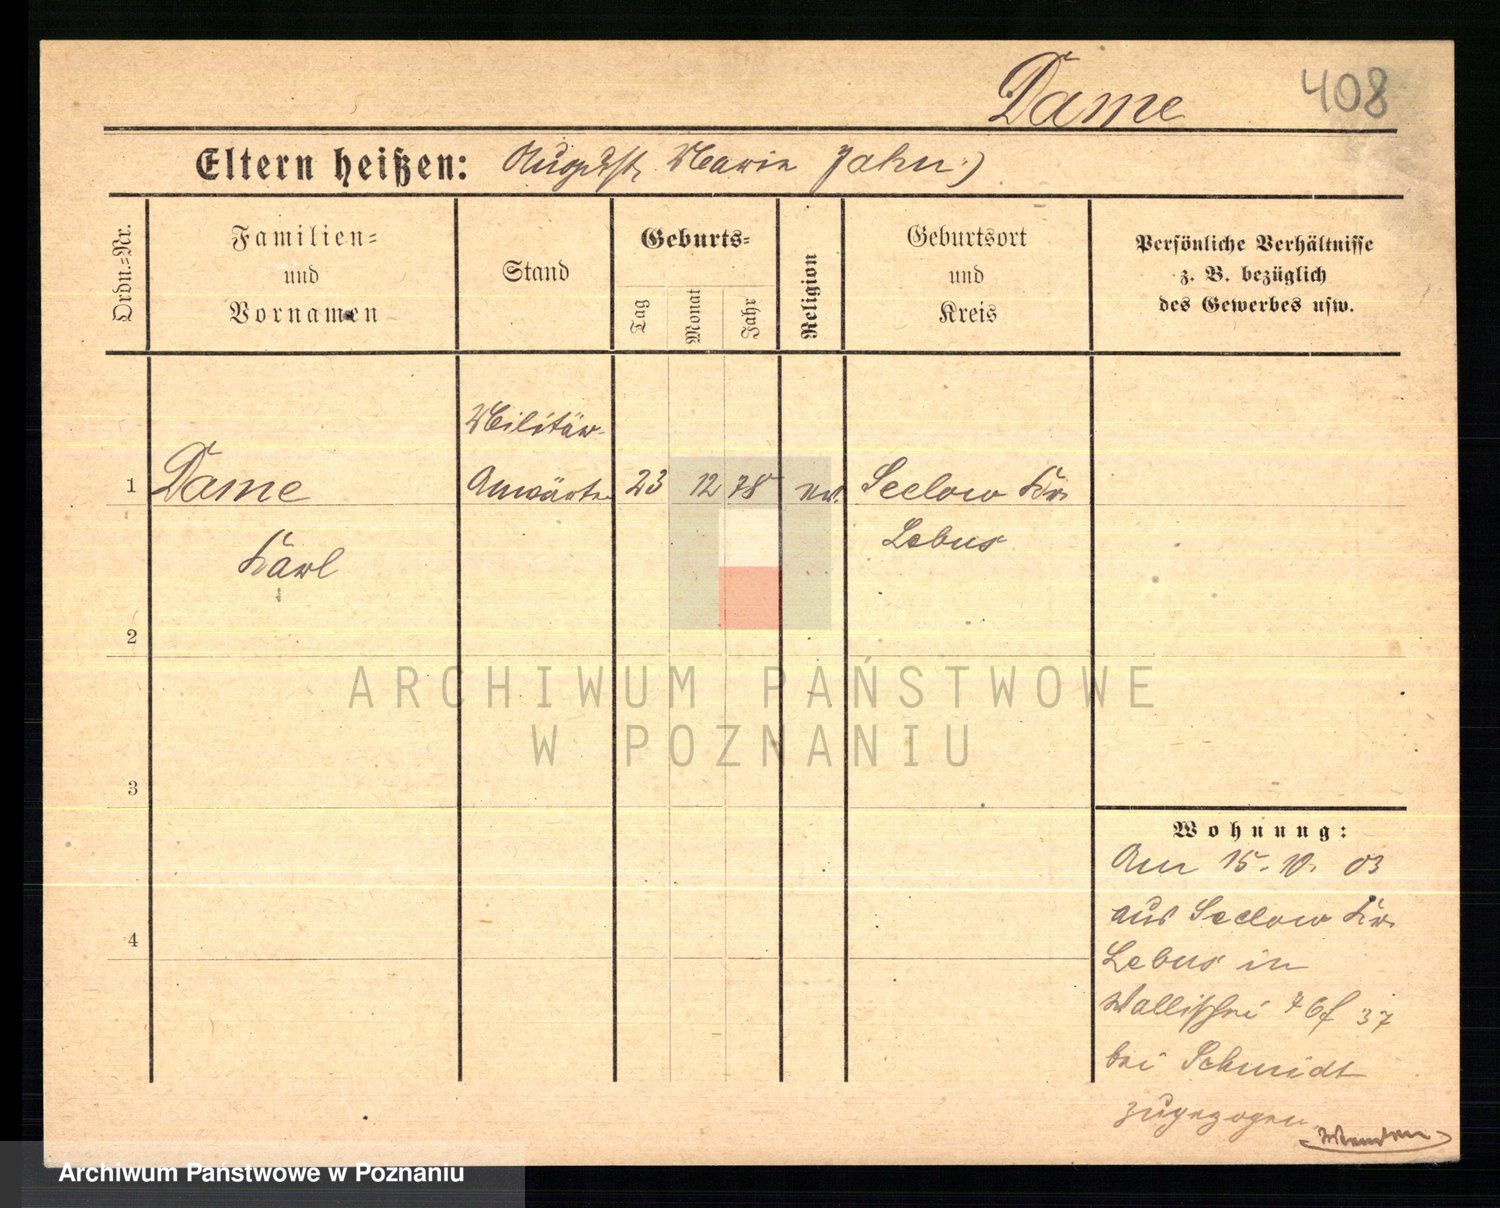 Dame
408
Eltern heißen: August, Marie Jahn :)
Ordn.=Nr.
Familien=
und
Vornamen
Stand
Geburts=
Tag
Monat
Jahr
Religion
Geburtsort
und
Kreis
Persönliche Verhältnisse
z. B. bezüglich
des Gewerbes usw.
Militär-
1 Dame Anwärter 23 12 78 ev. Seelow Kr.
Karl Lebus
2
3
4
Wohnung:
Am 15. 10. 03
aus Seelow Kr.
Lebus in
Wallischei 76f 37
bei Schmidt
zugezogen
ARCHIWUM PAŃSTWOWE
W POZNANIU
Archiwum Państwowe w Poznaniu